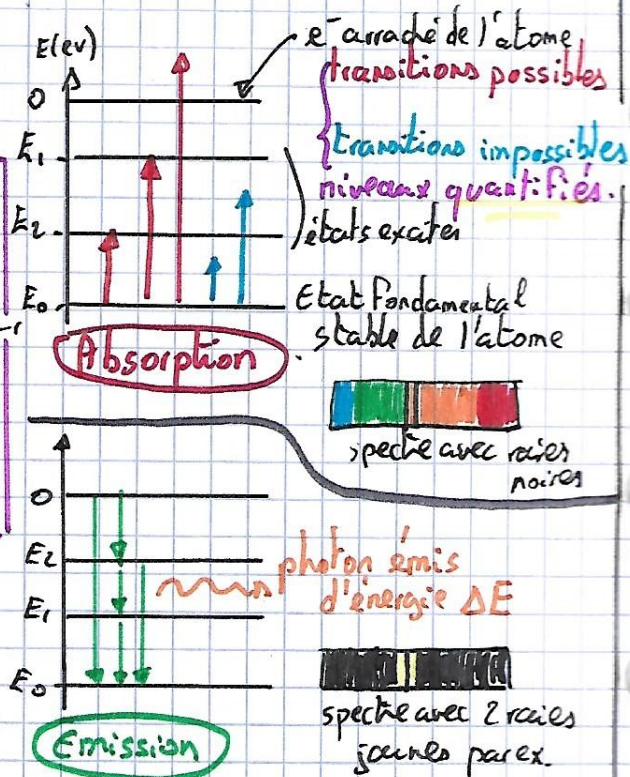 E(ev)
e- arraché de l'atome
transitions possibles
O
E1
transitions impossibles
niveaux quantifiés.
E2
états exités
E0
Etat fondamental
stable de l'atome
Absorption
spectre avec raies
noires
O
E2
photon émis
d'énergie ΔE
E1
E0
spectre avec 2 raies
jaunes par ex.
Emission